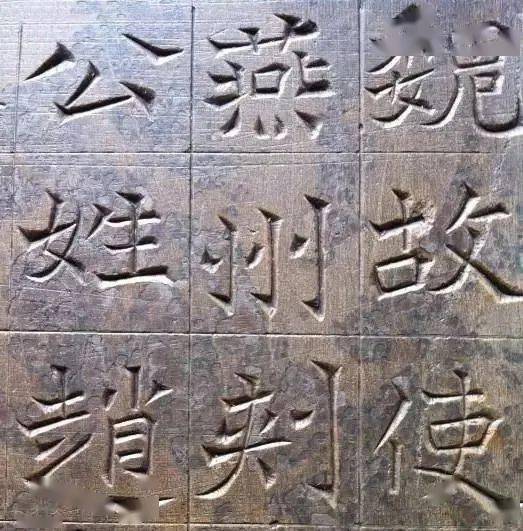 魏故使
燕州刾
公姓趙